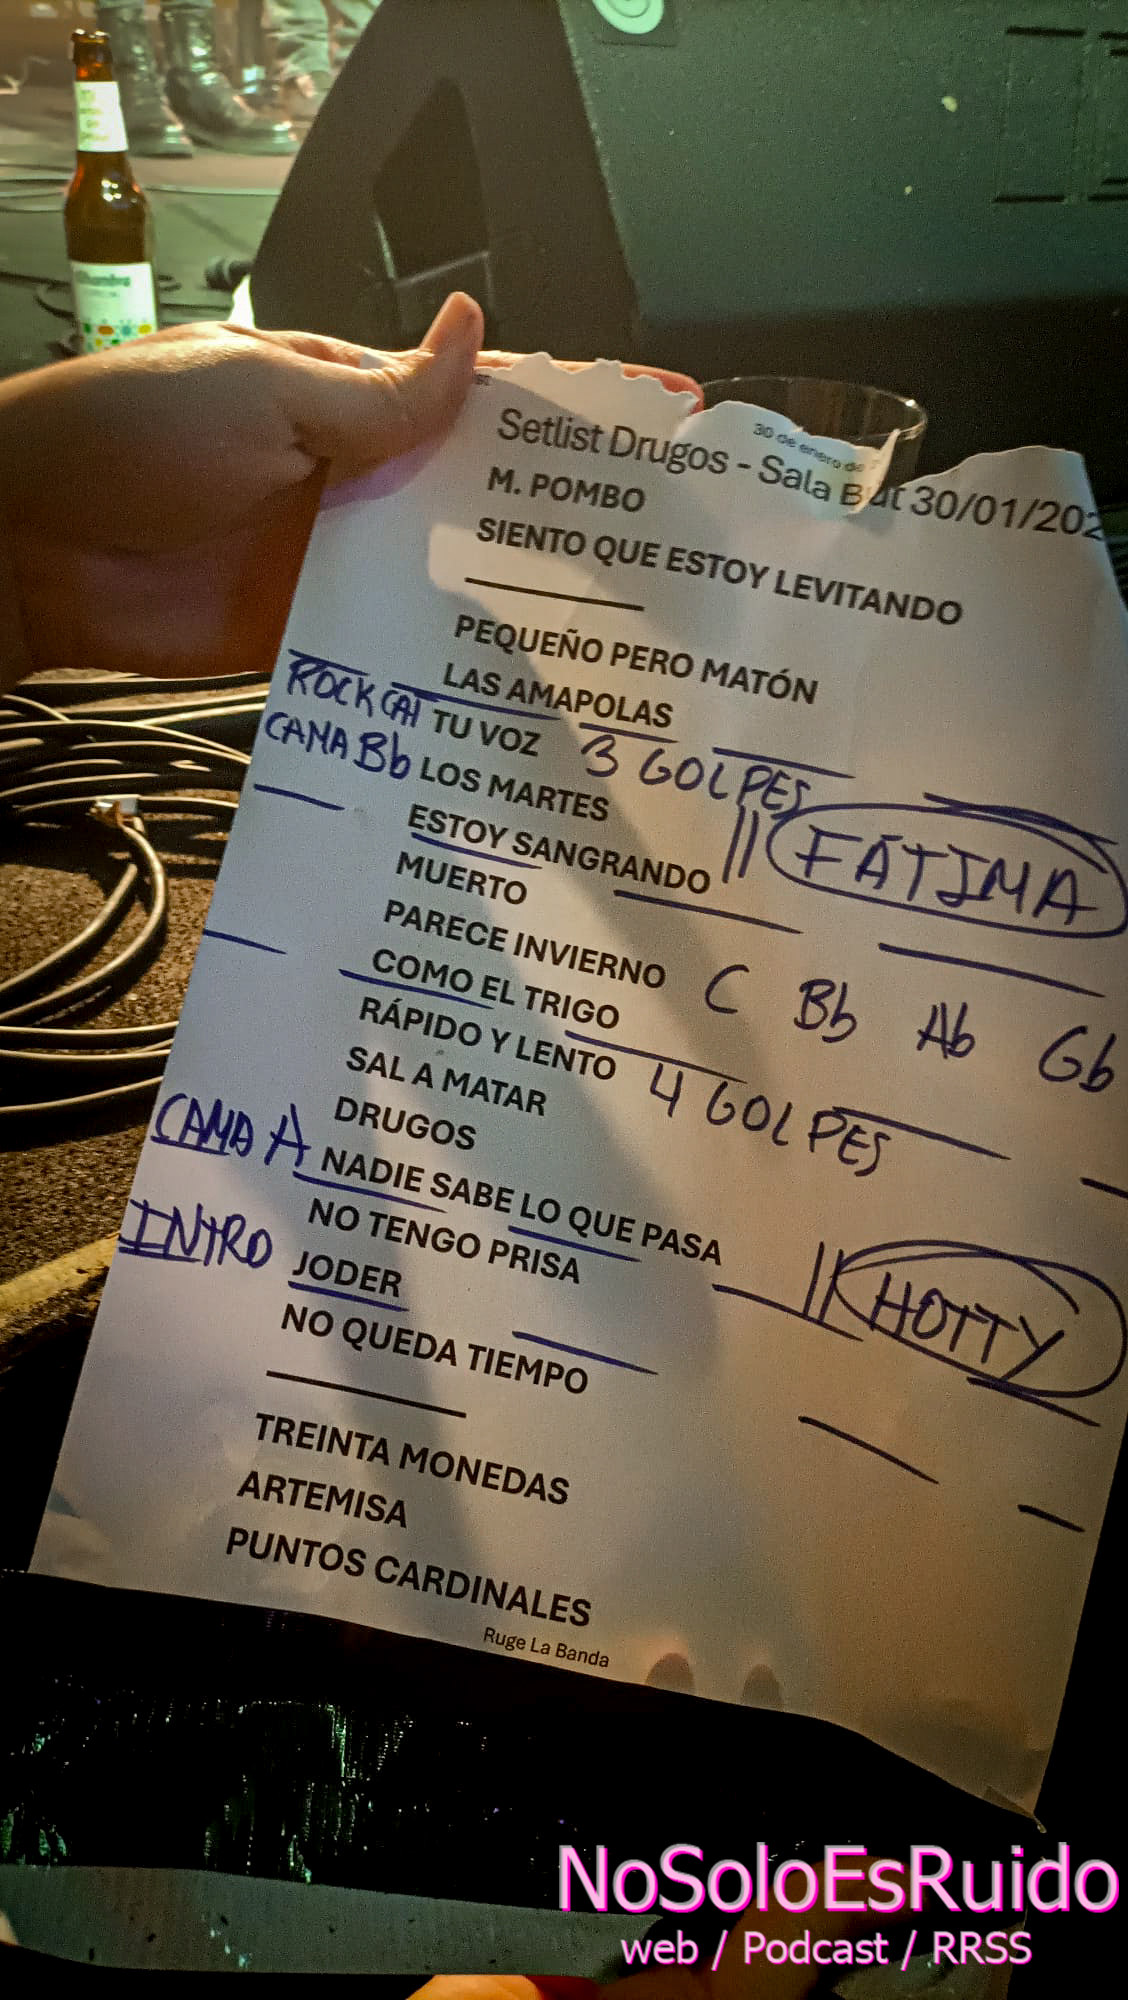 30 de enero de
Setlist Drugos - Sala But 30/01/202
M. POMBO
SIENTO QUE ESTOY LEVITANDO
PEQUEÑO PERO MATÓN
LAS AMAPOLAS
ROCK CAI TU VOZ 3 GOLPES
CAMA Bb LOS MARTES
ESTOY SANGRANDO || FÁTIMA
MUERTO
PARECE INVIERNO C Bb Ab Gb
COMO EL TRIGO
RÁPIDO Y LENTO 4 GOLPES
SAL A MATAR
DRUGOS
CAMA A NADIE SABE LO QUE PASA
NO TENGO PRISA || HOTTY
INTRO JODER
NO QUEDA TIEMPO
TREINTA MONEDAS
ARTEMISA
PUNTOS CARDINALES
Ruge La Banda
NoSoloEsRuido
web / Podcast / RRSS